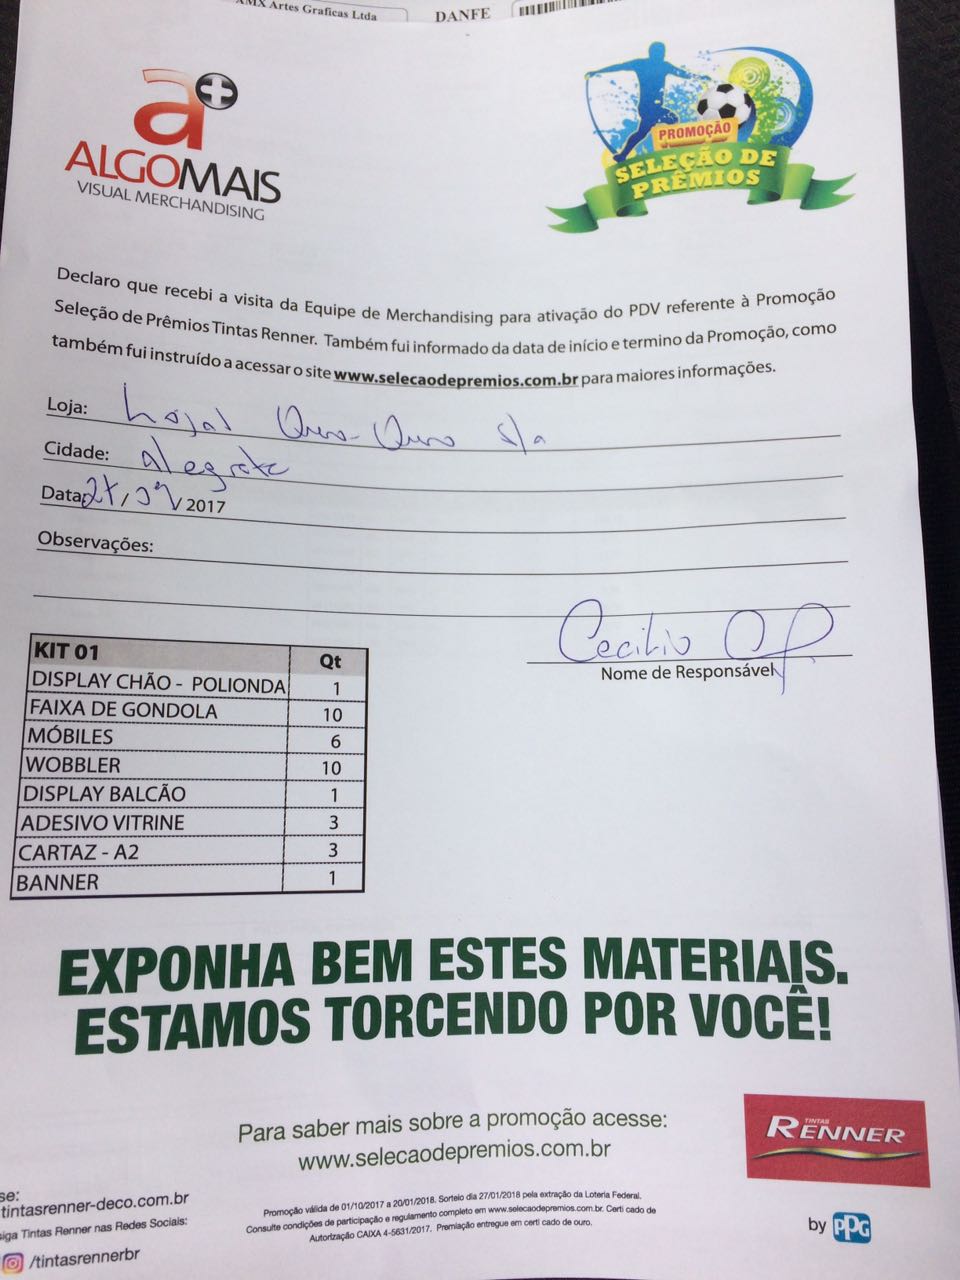 AMX Artes Graficas Ltda
DANFE
a+
ALGOMAIS
VISUAL MERCHANDISING
PROMOÇÃO
SELEÇÃO DE
PRÊMIOS
Declaro que recebi a visita da Equipe de Merchandising para ativação do PDV referente à Promoção
Seleção de Prêmios Tintas Renner. Também fui informado da data de início e termino da Promoção, como
também fui instruído a acessar o site www.selecaodepremios.com.br para maiores informações.
Loja: Lojas Quero-Quero S/a
Cidade: alegrete
Data: 27/ /2017
Observações:
Cecilio
Nome de Responsável
KIT 01 Qt
DISPLAY CHÃO - POLIONDA 1
FAIXA DE GONDOLA 10
MÓBILES 6
WOBBLER 10
DISPLAY BALCÃO 1
ADESIVO VITRINE 3
CARTAZ - A2 3
BANNER 1
EXPONHA BEM ESTES MATERIAIS.
ESTAMOS TORCENDO POR VOCÊ!
Para saber mais sobre a promoção acesse:
www.selecaodepremios.com.br
TINTAS
RENNER
by PPG
se:
tintasrenner-deco.com.br
siga Tintas Renner nas Redes Sociais:
/tintasrennerbr
Promoção válida de 01/10/2017 a 20/01/2018. Sorteio dia 27/01/2018 pela extração da Loteria Federal.
Consulte condições de participação e regulamento completo em www.selecaodepremios.com.br. Certi cado de
Autorização CAIXA 4-5631/2017. Premiação entregue em certi cado de ouro.